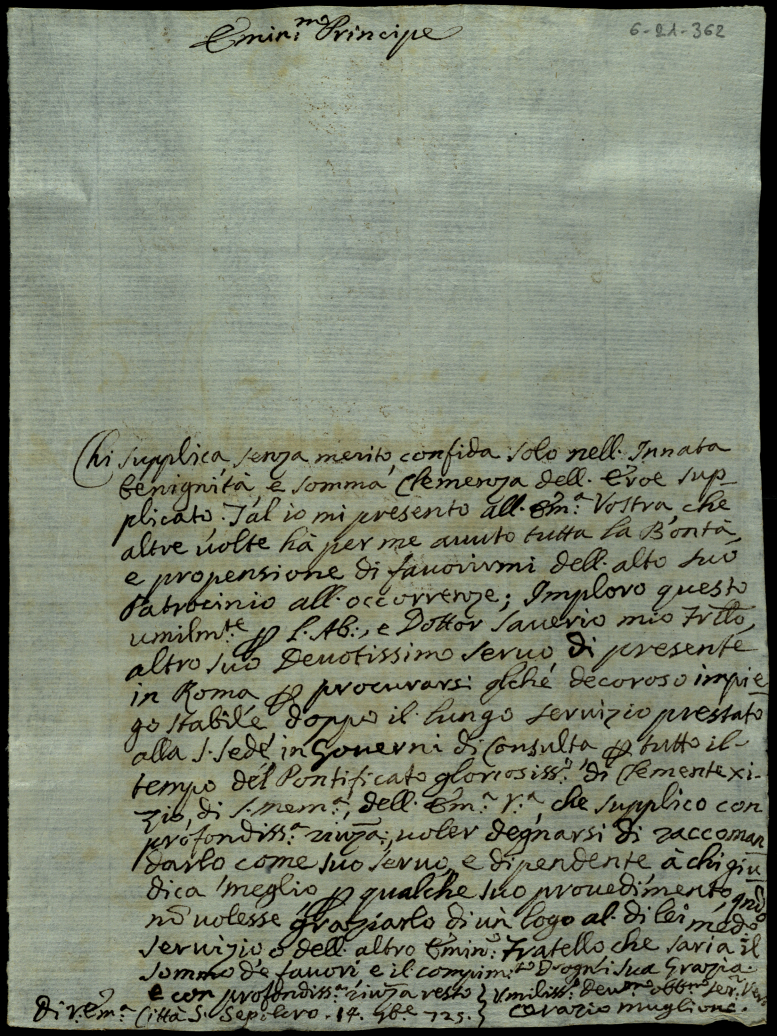 6-21-362
Emin.mo Principe
Chi supplica senza merito, confida solo nell. Innata
benignità e somma Clemenza dell. Eroe sup-
plicato. Tal io mi presento all. Em.a Vostra, che
altre volte hà per me avuto tutta la Bontà,
e propensione di favorirmi dell. alto suo
Patrocinio all. occorrenze; Imploro questo
umilm.te p l. Ab., e Dottor Saverio mio Frēllo,
altro suo Devotissimo servo di presente
in Roma p procurarsi qlche decoroso impie-
go stabile doppo il lungo servizio prestato
alla S. Sede in Governi di Consulta p tutto il
tempo del Pontificato glorioSiss.o di Clemente xi-
zio, di S. mem.a, dell. Em.a V.a, che supplico con
profondiss.a riv̄za, voler degnarsi di raccoman
darlo come suo servo, e dipendente à chi giu
dica meglio p qualche suo provedimento, qn̄do
nō volesse graziarlo di un logo al. di lei med.o
servizio o dell. altro Emin.o Fratello che saria il
sommo de favori e il compim.to D'ogni sua Grazia
e con profondiss.a riv̄za resto
Di V. Em.a Città S. Sepolcro. 14. 9bre 725.
Umiliss.o dev.mo obb.mo ser.
Orazio Muglioni.